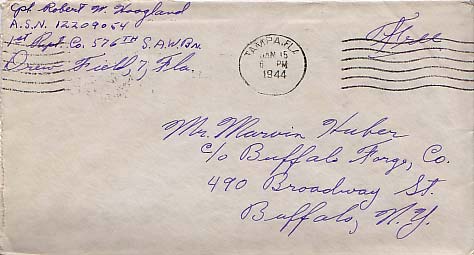 Cpl. Robert W. Hoagland
A.S.N. 12209054
1st Rept. Co. 576TH S.A.W.Bn.
Drew Field, Fla.
TAMPA, FLA.
JAN 15
6 PM
1944
Free
Mr. Marvin Huber
c/o Buffalo Forge, Co.
490 Broadway St.
Buffalo, N.Y.